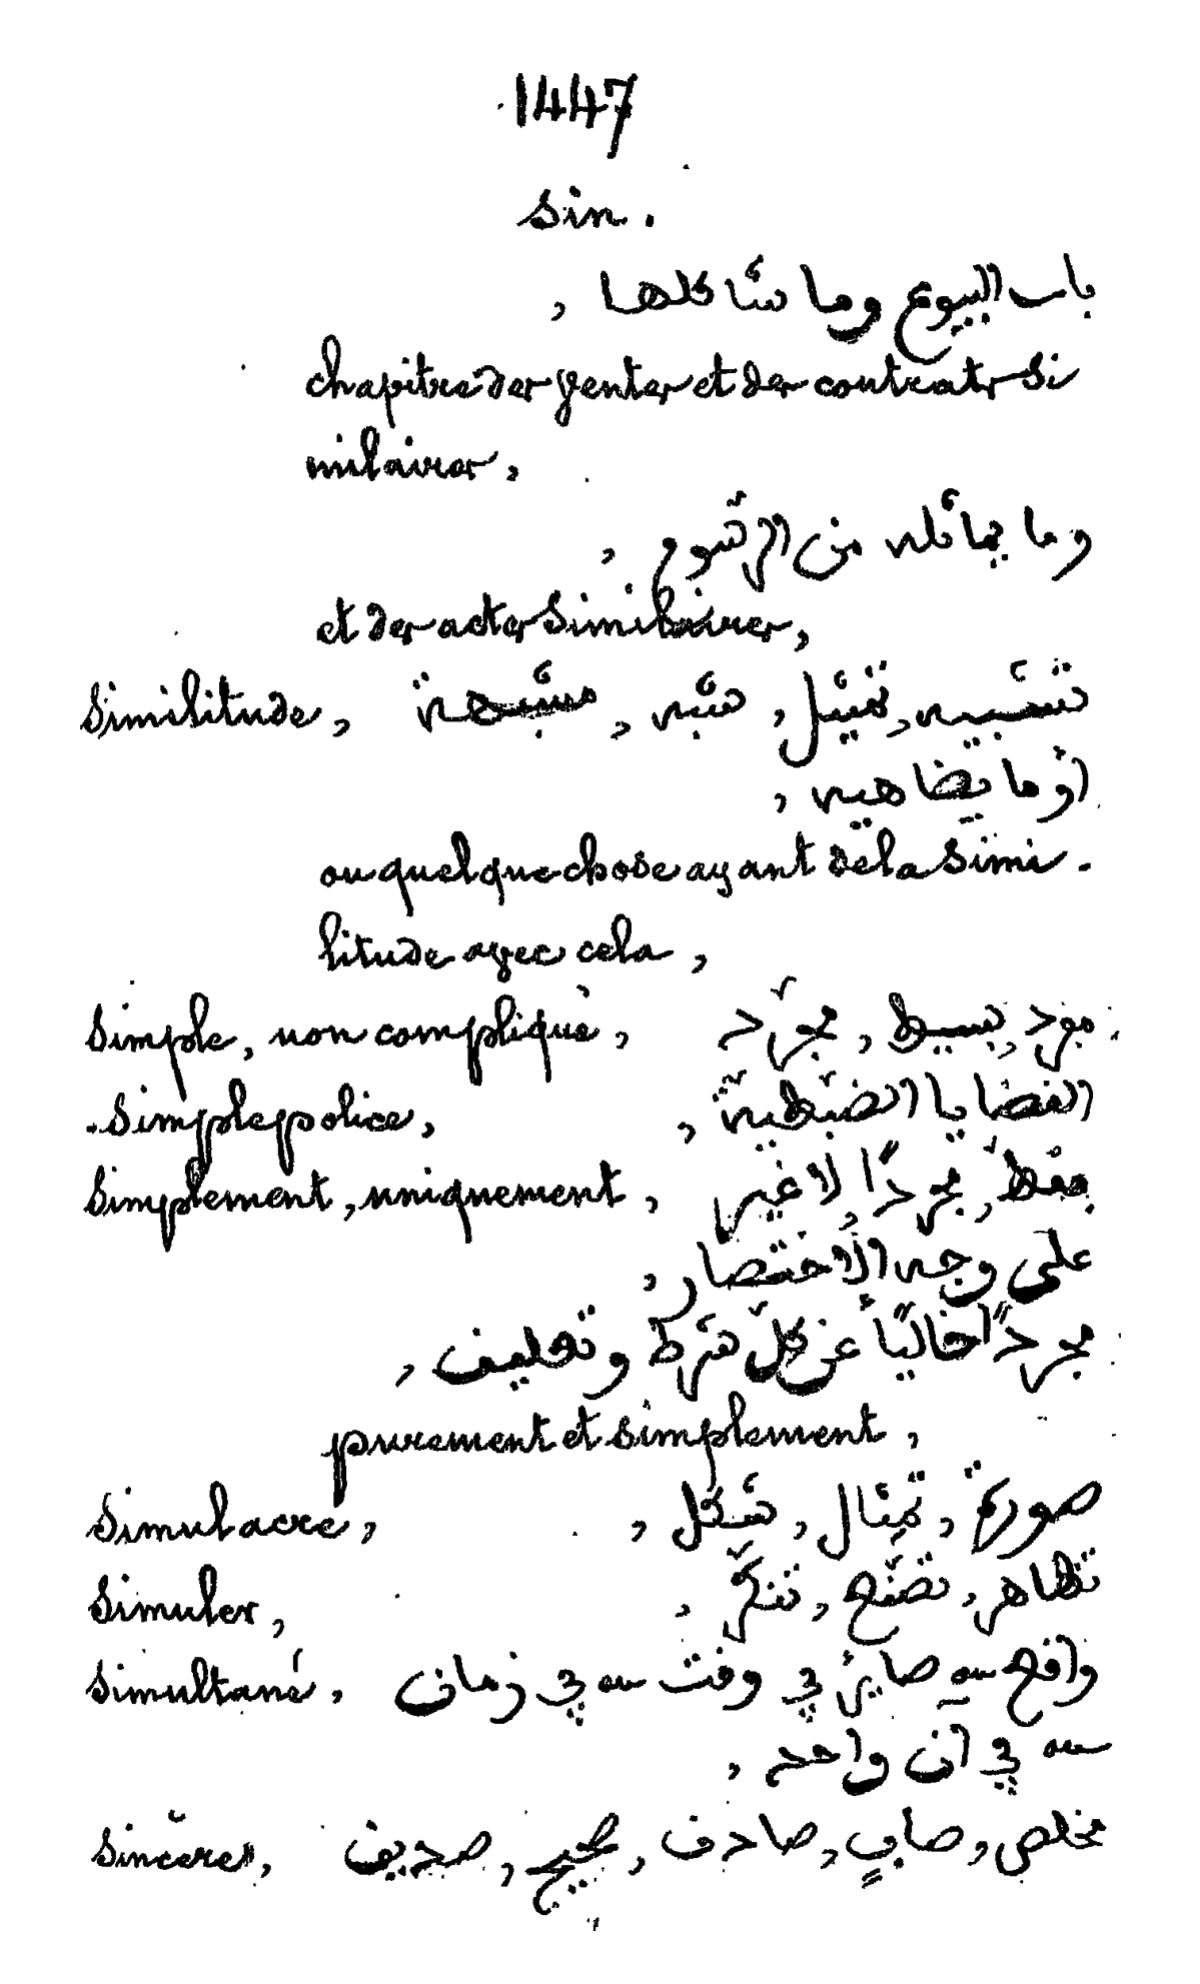 1447
Sin.
باب البيوع وما شاكلها ,
chapitre des ventes et des contrats si
milaires,
وما يماثله من الرسوم ,
et des actes similaires,
Similitude, تشبيه, تمثيل, شبه, مشبهة
أو ما يضاهيه ,
ou quelque chose ayant de la simi-
litude avec cela,
Simple, non compliqué, مفرد, بسيط, مجرّد
Simple police, القضايا الضبطيّة ,
Simplement, uniquement, فقط, مجردًا, لا غير
على وجه الاختصار ,
مجردًا خاليًا عن كلّ شرط وتعليف ,
purement et simplement,
Simulacre, صورة, تمثال, شكل ,
Simuler, تظاهر, تصنّع, تنكّر ,
Simultané, واقع صاير في وقت في زمان
في آن واحد ,
Sincère, مخلص, صافٍ, صادف, صحيح, صديف